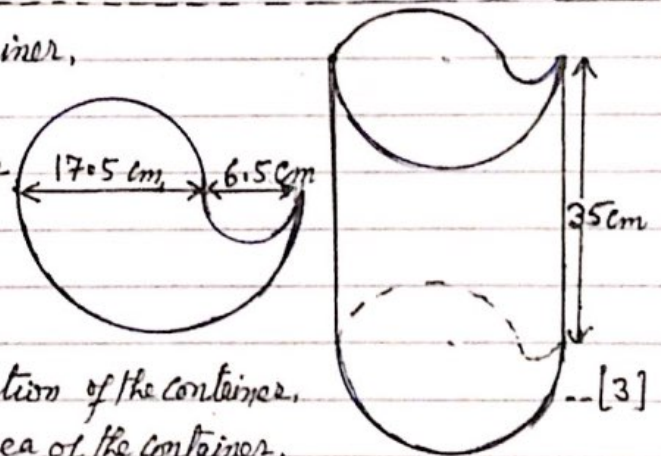 iner,
17.5 cm
6.5 cm
35cm
tion of the container.
--[3]
ea of the container.